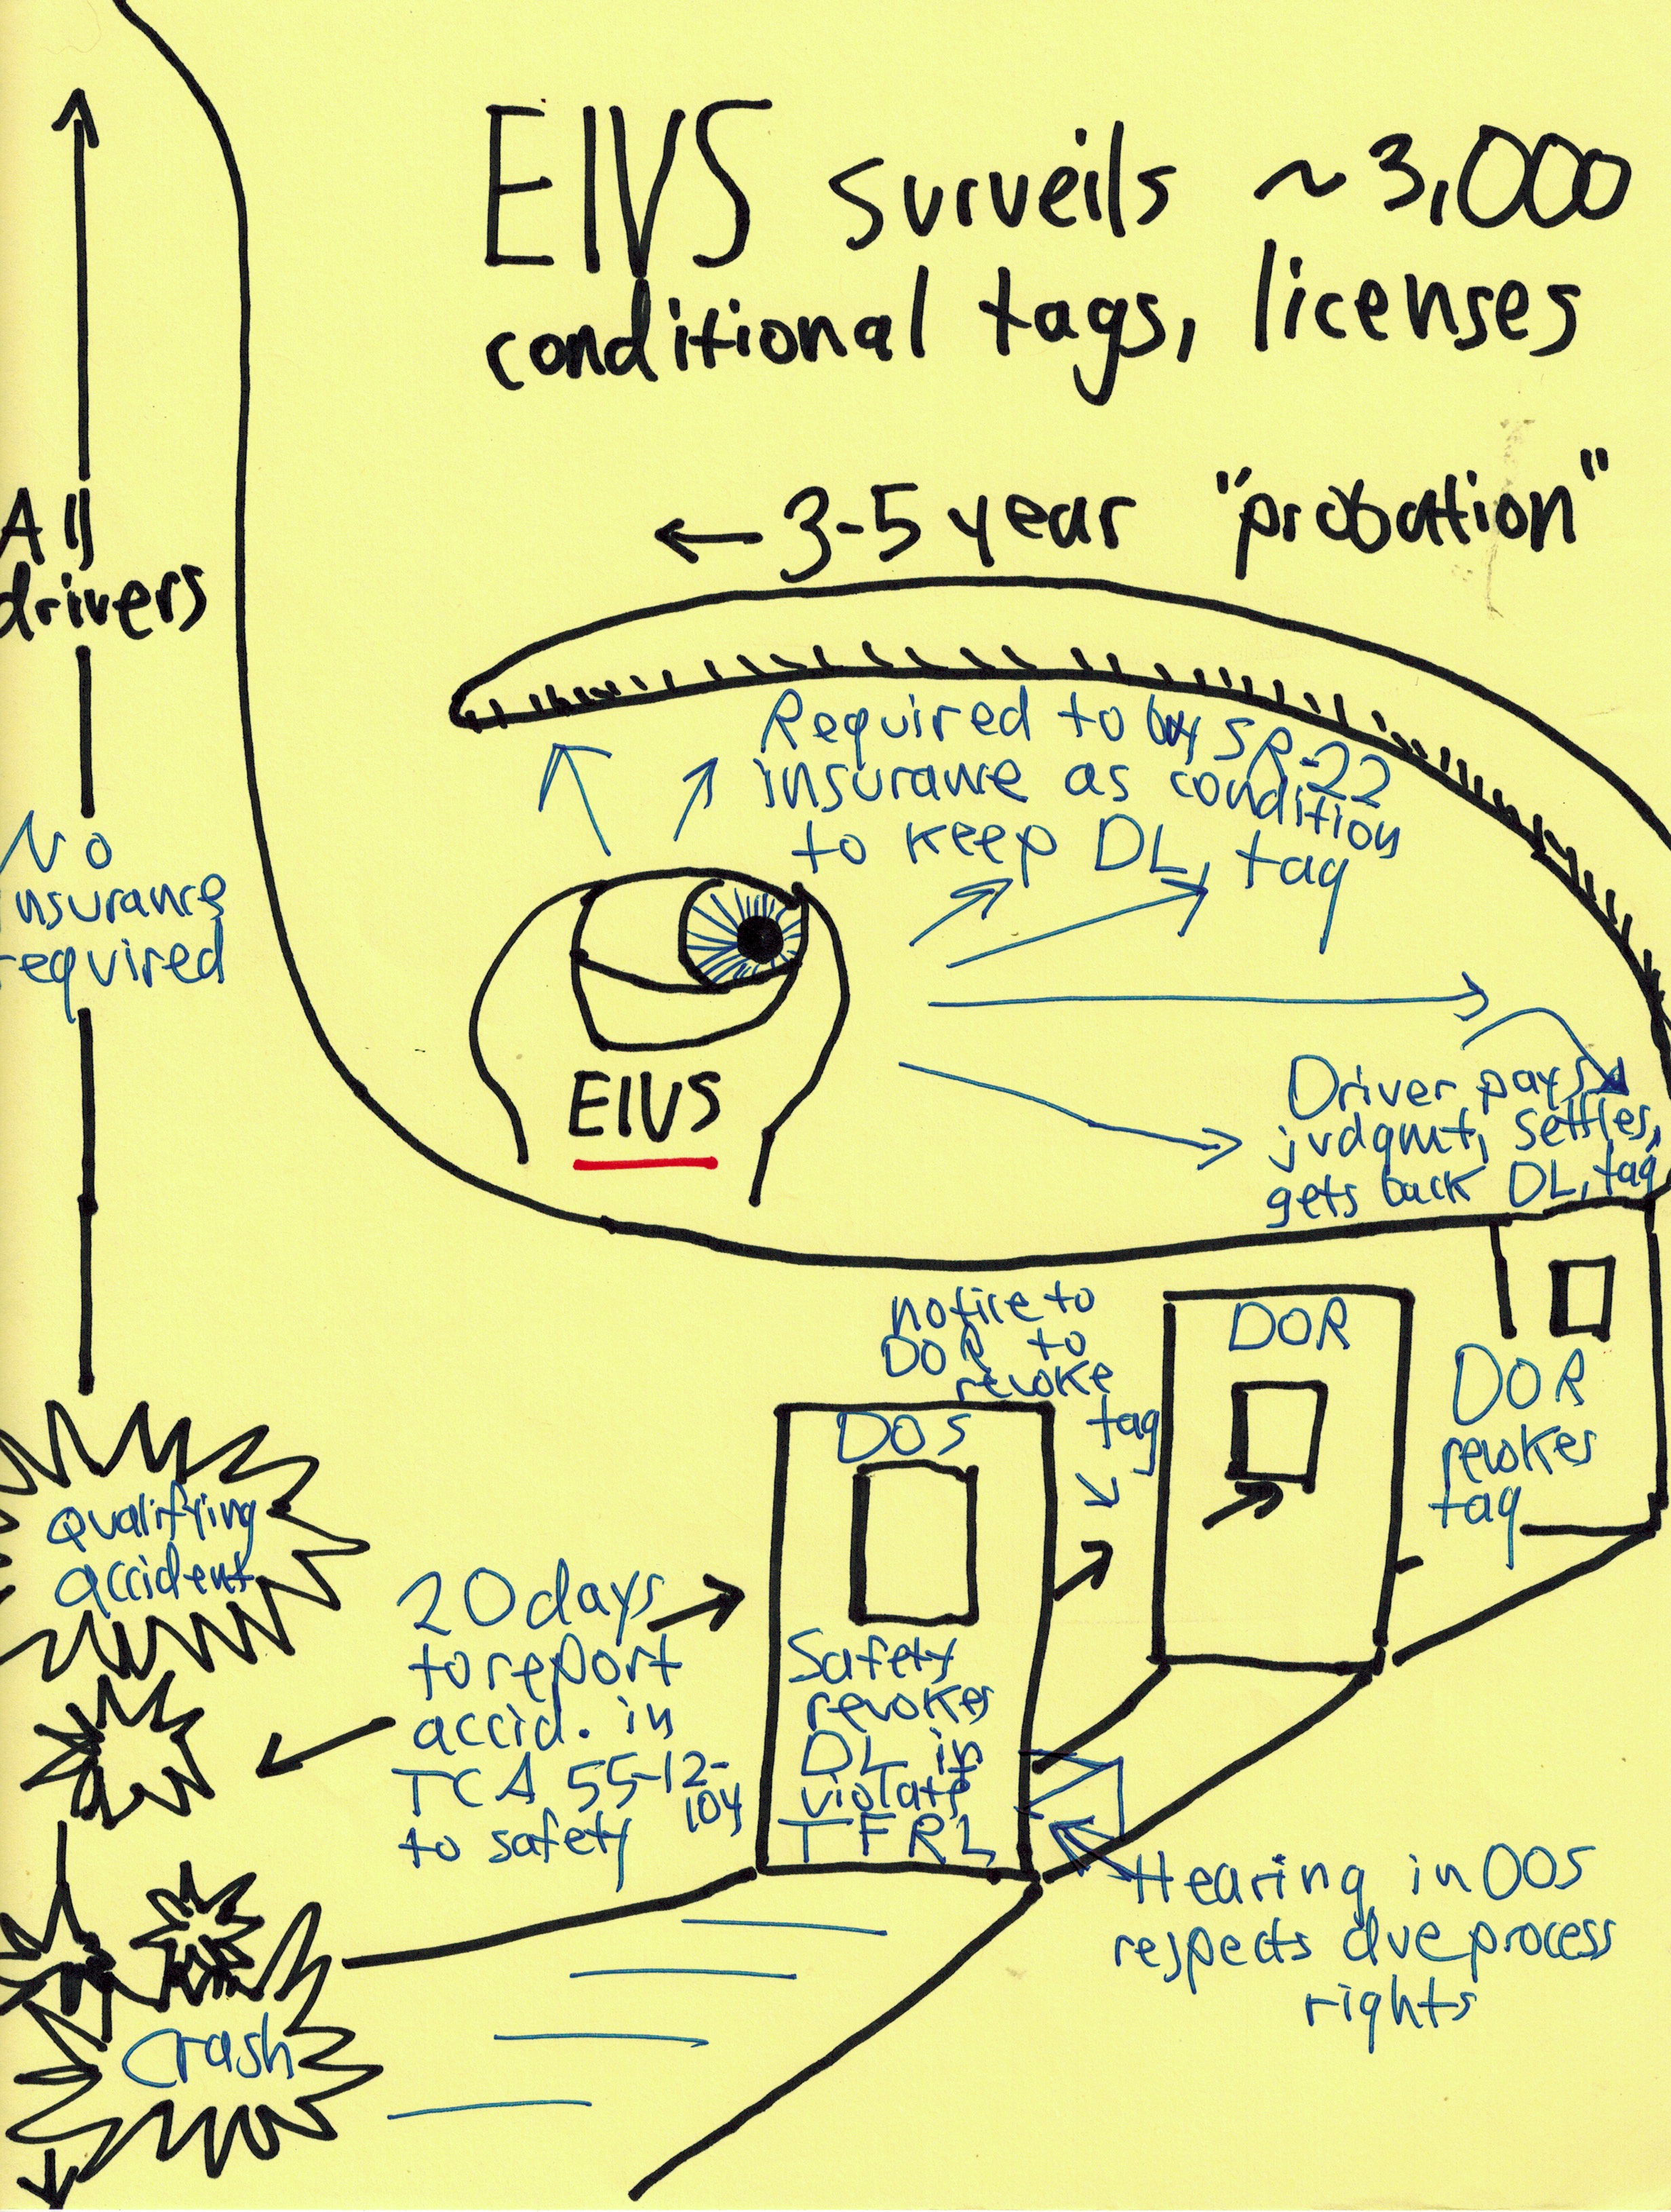 EIVS surveils ~3,000
conditional tags, licenses
← 3-5 year "probation"
All
drivers
No
insurance
required
Required to buy SR-22
insurance as condition
to keep DL, tag
EIVS
Driver pays
judgmt, settles,
gets back DL, tag
notice to
DOR to
revoke
tag
DOR
DOR
revokes
tag
DOS
Safety
revokes
DL in
violate
TFRL
Qualifying
accident
20 days
to report
accid. in
TCA 55-12-
104
to safety
Hearing in DOS
respects due process
rights
Crash